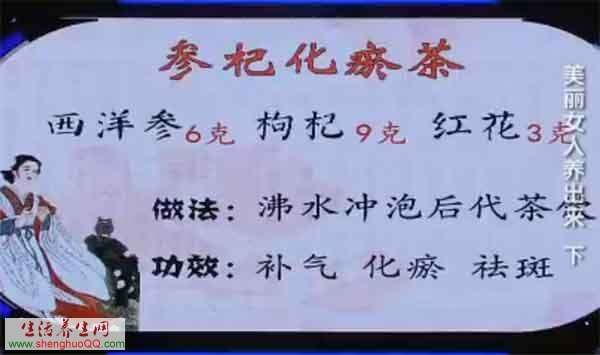 参杞化瘀茶
西洋参6克 枸杞9克 红花3克
做法：沸水冲泡后代茶饮
功效：补气 化瘀 祛斑
美丽女人养出来 下
生活养生网
www.shenghuoQQ.com